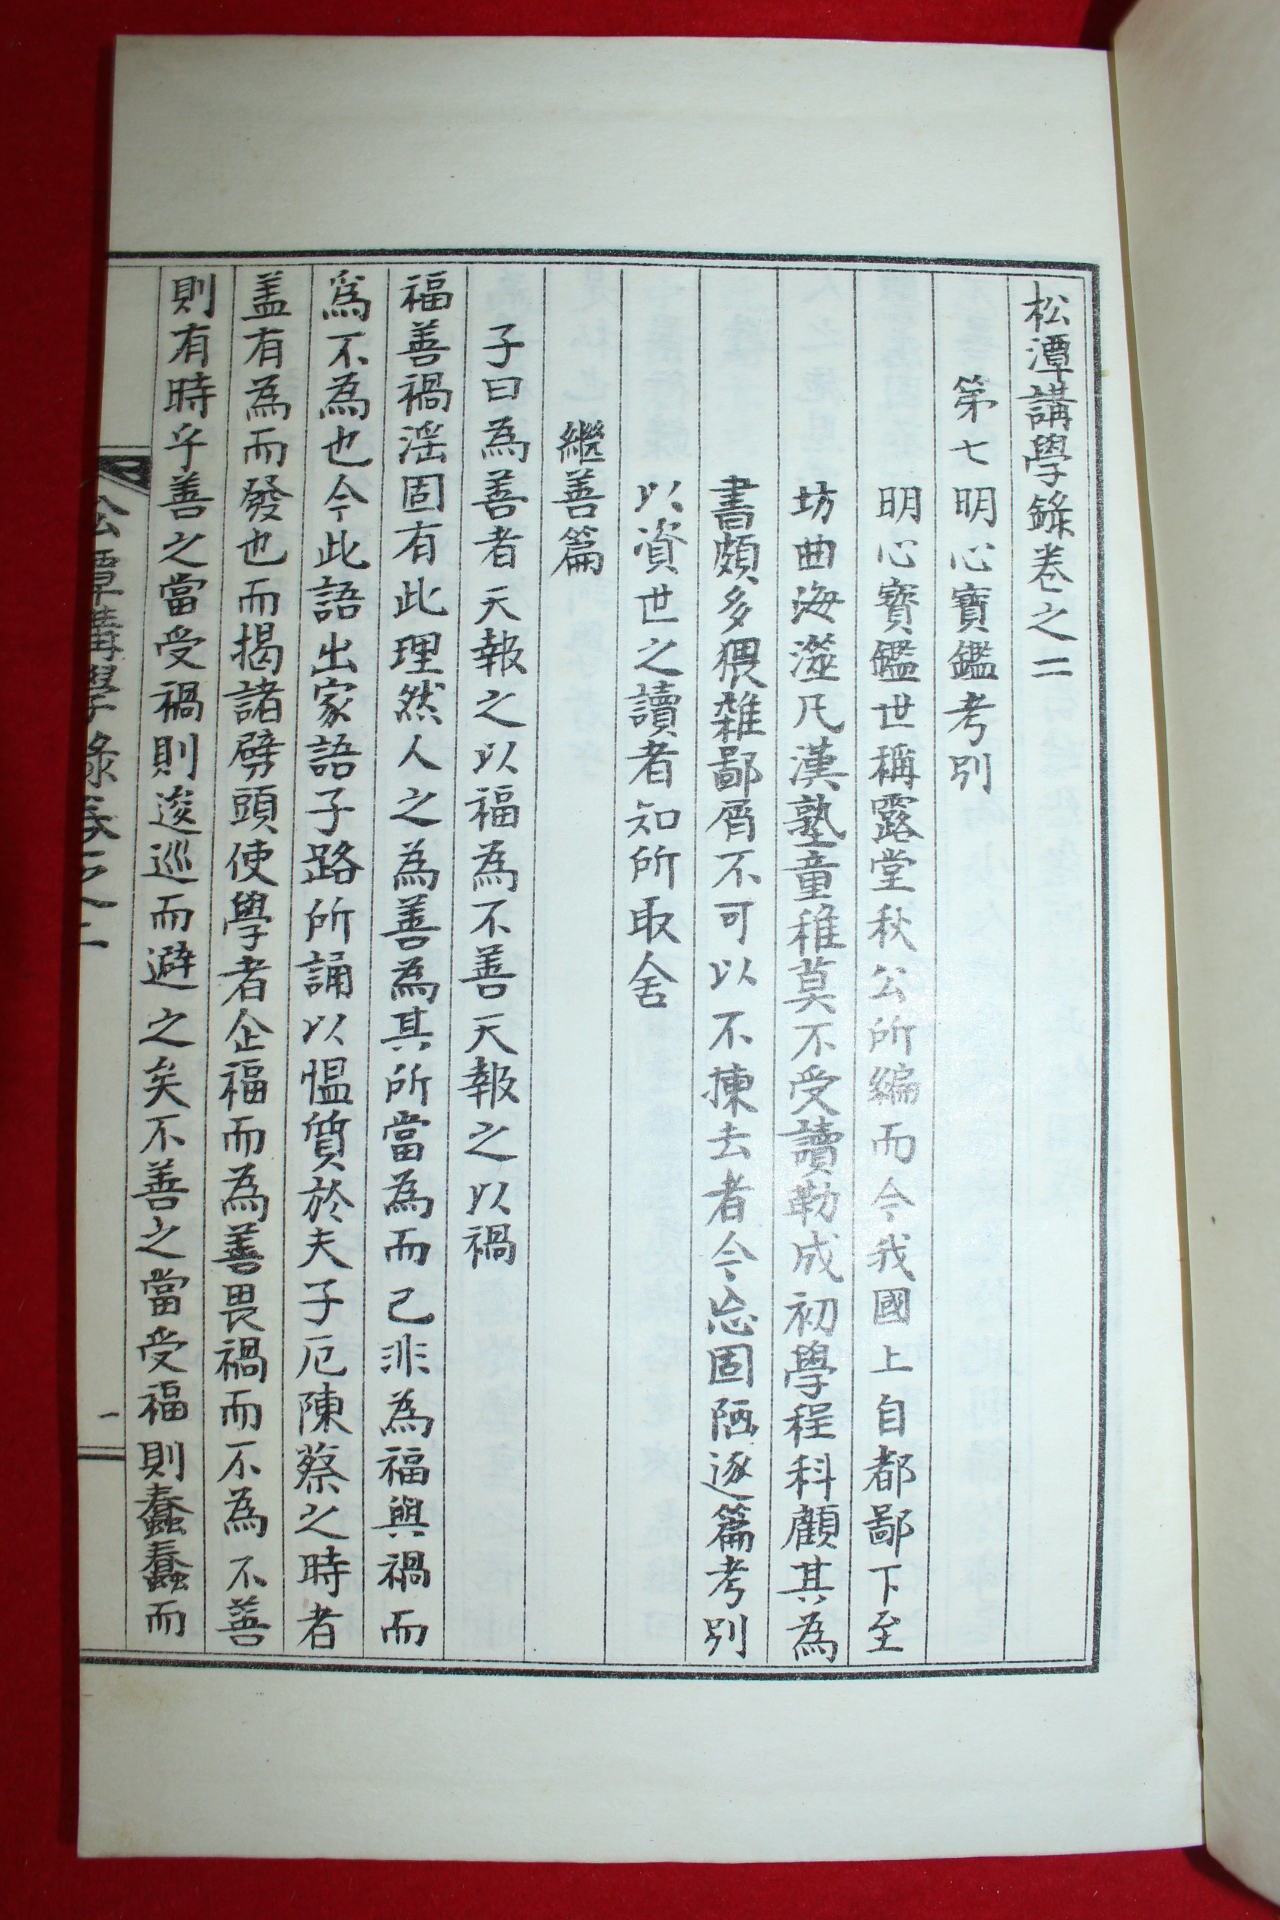 松潭講學錄卷之二
第七明心寶鑑考別
明心寶鑑世稱露堂秋公所編而今我國上自都鄙下至
坊曲海澨凡漢塾童稚莫不受讀勒成初學程科顧其為
書頗多猥雜鄙屑不可以不揀去者今忘固陋逐篇考別
以資世之讀者知所取舍
繼善篇
子曰為善者天報之以福為不善天報之以禍
福善禍淫固有此理然人之為善為其所當為而已非為福與禍而
爲不為也今此語出家語子路所誦以慍質於夫子厄陳蔡之時者
盖有為而發也而揭諸劈頭使學者企福而為善畏禍而不為不善
則有時乎善之當受禍則逡巡而避之矣不善之當受福則蠢蠢而
松潭講學錄卷之二
一